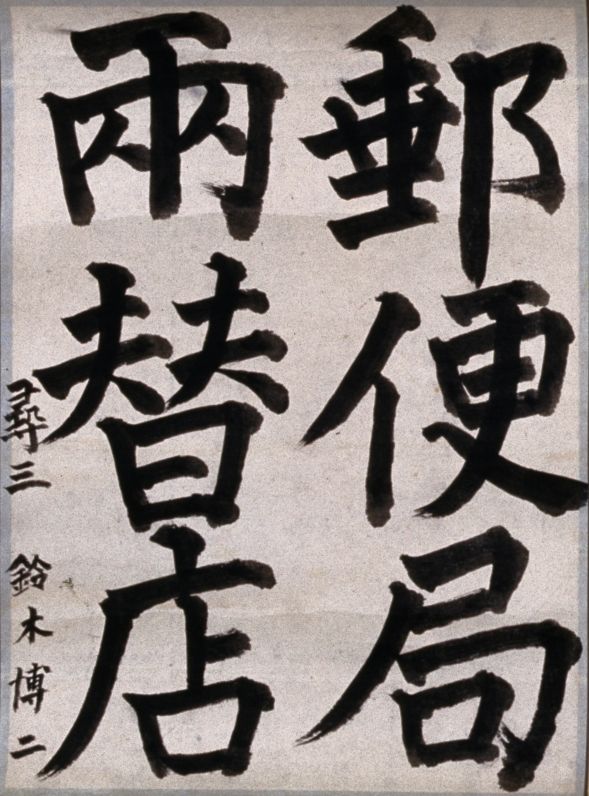 郵便局
兩替店
尋三 鈴木博二